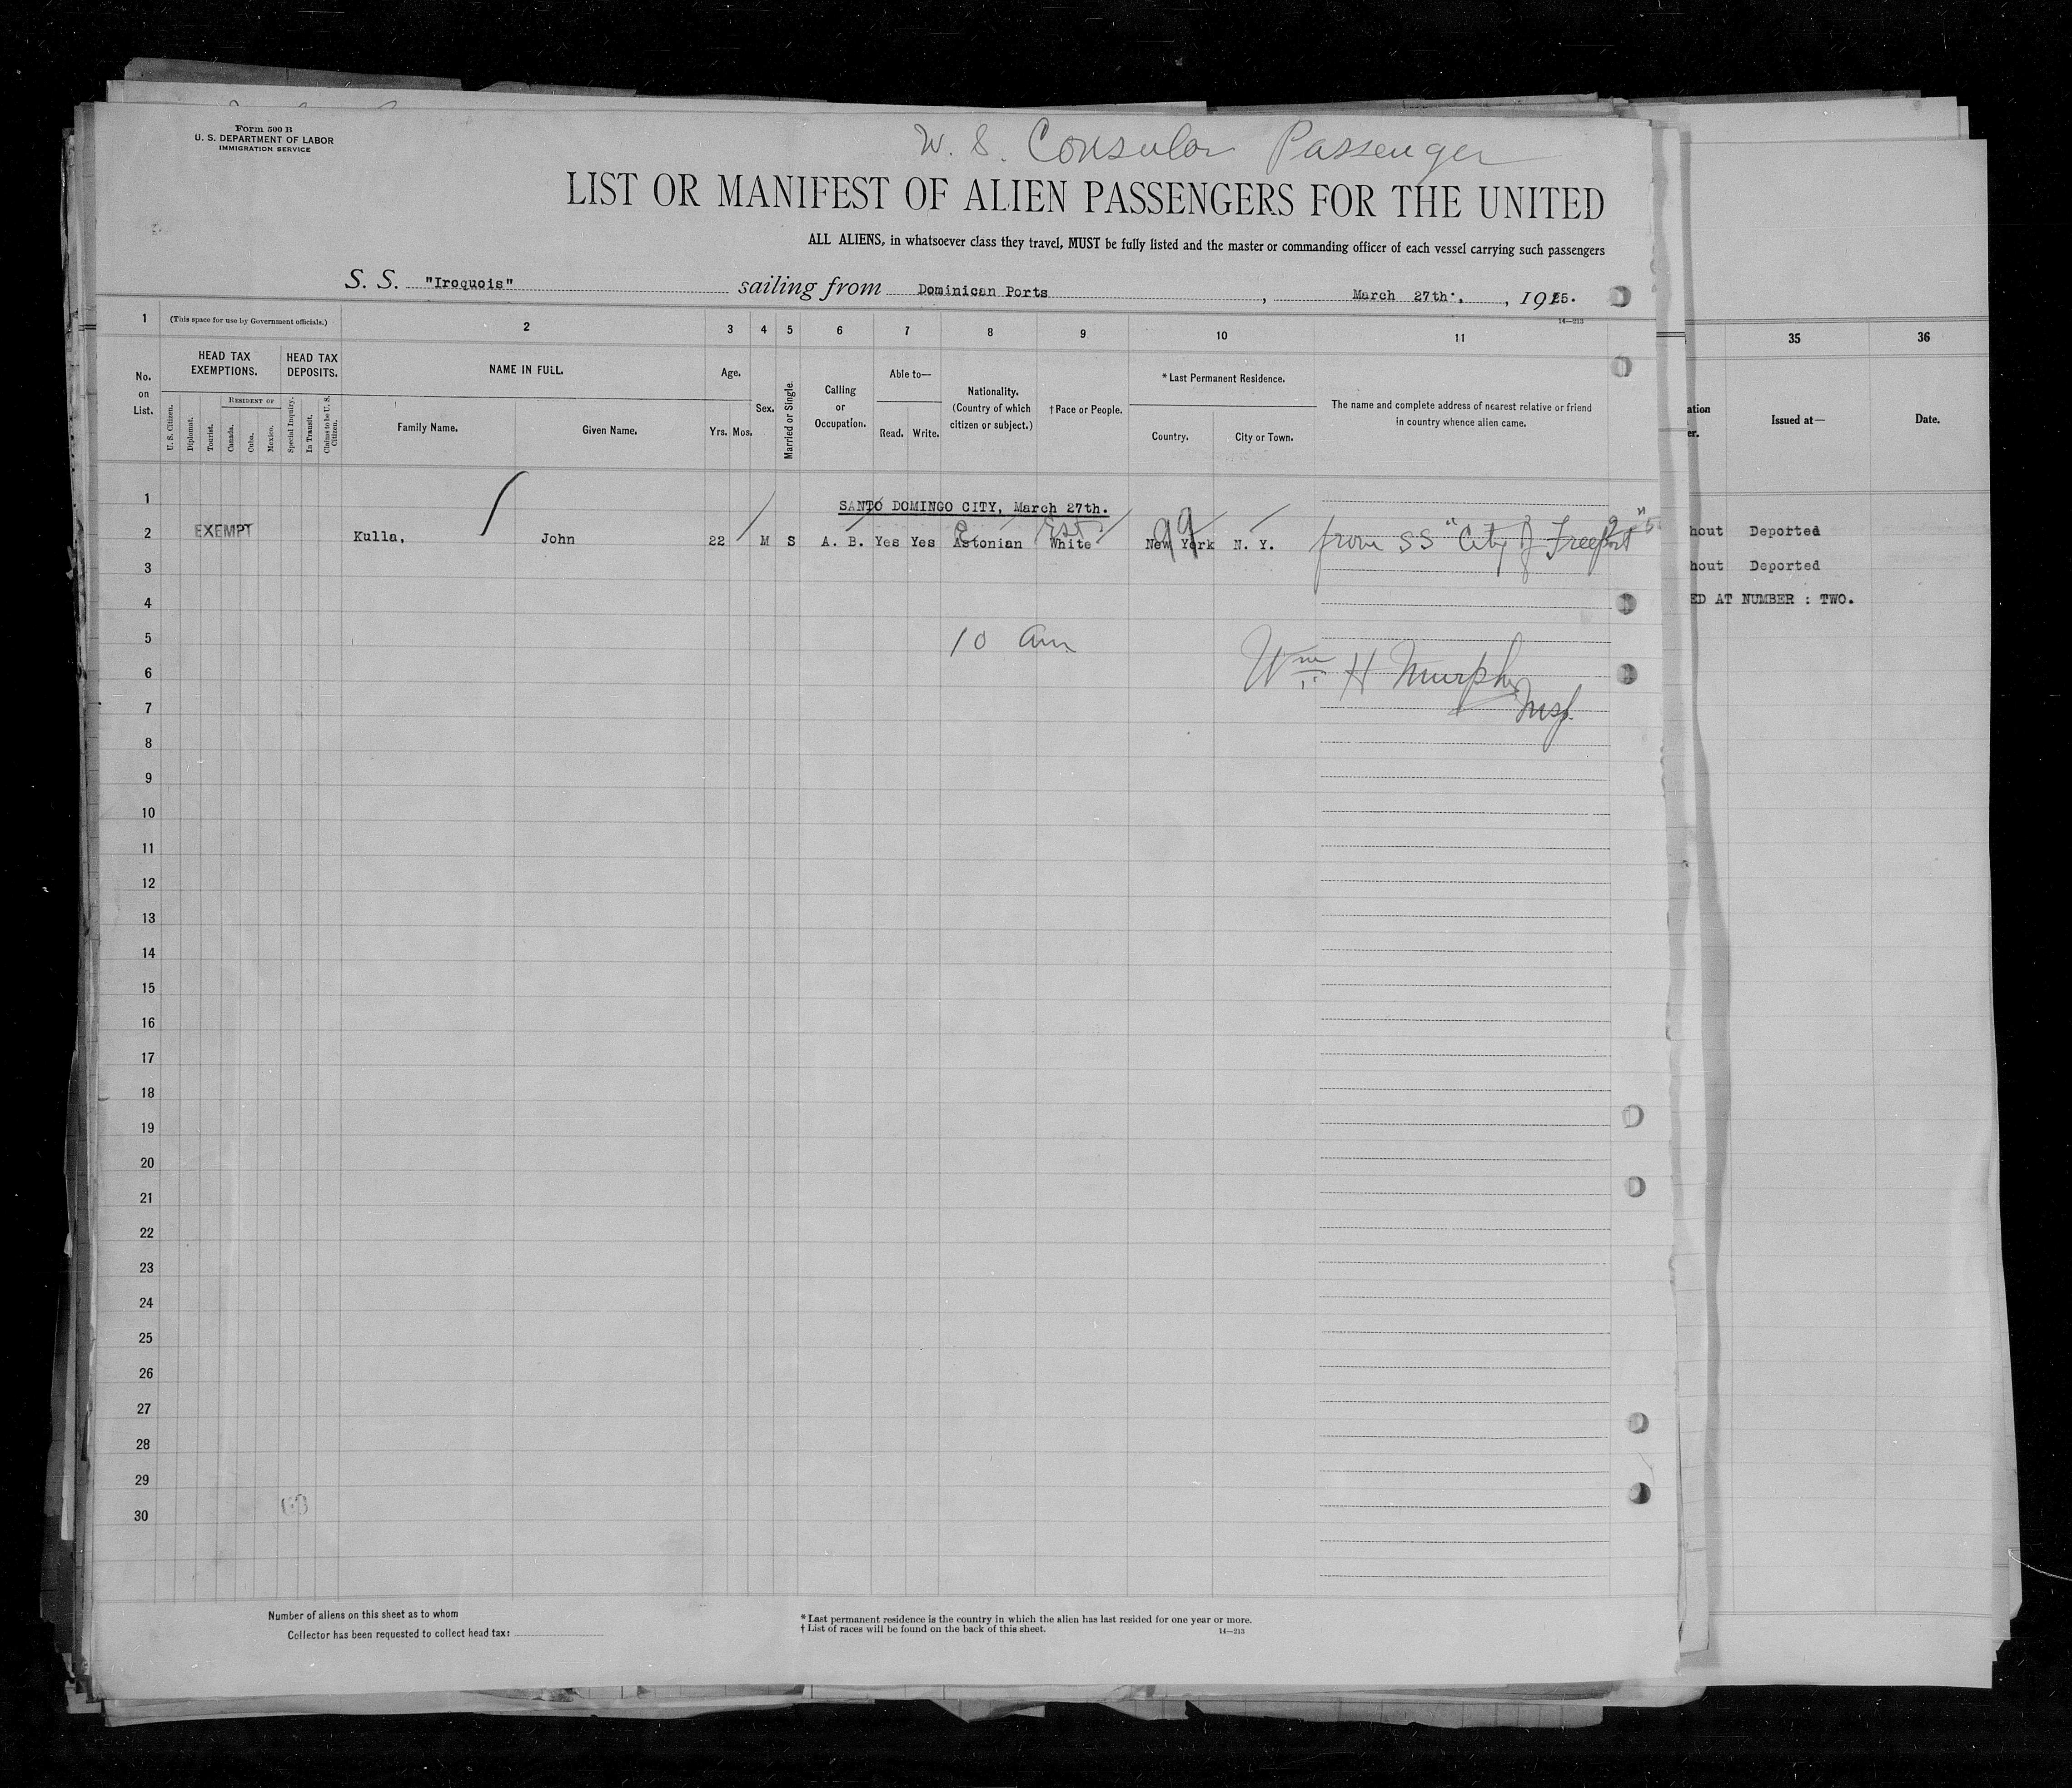 Form 500 B
U. S. DEPARTMENT OF LABOR
IMMIGRATION SERVICE
U. S. Consular Passenger
LIST OR MANIFEST OF ALIEN PASSENGERS FOR THE UNITED
ALL ALIENS, in whatsoever class they travel, MUST be fully listed and the master or commanding officer of each vessel carrying such passengers
S. S. "Iroquois" sailing from Dominican Ports, March 27th., 1925.
14—213
1 (This space for use by Government officials.) 2 3 4 5 6 7 8 9 10 11 35 36
No. on List.
HEAD TAX EXEMPTIONS.
HEAD TAX DEPOSITS.
U. S. Citizen.
Diplomat.
Tourist.
RESIDENT OF
Canada.
Cuba.
Mexico.
Special Inquiry.
In Transit.
Claims to be U. S. Citizen.
NAME IN FULL.
Family Name.
Given Name.
Age.
Yrs. Mos.
Sex.
Married or Single.
Calling or Occupation.
Able to—
Read. Write.
Nationality. (Country of which citizen or subject.)
†Race or People.
*Last Permanent Residence.
Country. City or Town.
The name and complete address of nearest relative or friend in country whence alien came.
ation
er.
Issued at—
Date.
1 SANTO DOMINGO CITY, March 27th.
2 EXEMPT Kulla, John 22 M S A. B. Yes Yes Astonian White New York N. Y. from SS "City of Freeport"
E Est.
99
hout Deported
3
hout Deported
4
ED AT NUMBER : TWO.
5 10 am
6 Wm H Murphy
7 Insp.
8
9
10
11
12
13
14
15
16
17
18
19
20
21
22
23
24
25
26
27
28
29
30
Number of aliens on this sheet as to whom
Collector has been requested to collect head tax:
* Last permanent residence is the country in which the alien has last resided for one year or more.
† List of races will be found on the back of this sheet.
14—213